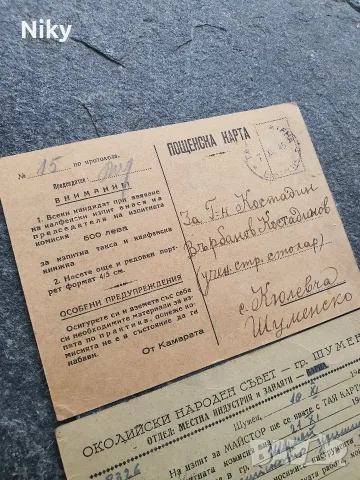 Niky
№ 15 по протокола.
Председател:
ВНИМАНИЕ!
1. Всеки кандидат при явяване
на калфенски изпит внася на
председателя на изпитната
комисия 500 лева
за изпитна такса и калфенска
книжка.
2. Носете още и редовен порт-
рет формат 4/3 см.
ОСОБЕНИ ПРЕДУПРЕЖДЕНИЯ
Осигурете си и вземете със себе
си необходимите материали за из-
пита по практика, понеже ко-
мисията не е в състояние да ги
набави.
От Камарата
ПОЩЕНСКА КАРТА
За Г-н Костадин
Върбанов Костадинов
(учен. стр. столар)
с. Кюлевча
Шуменско
ОКОЛИЙСКИ НАРОДЕН СЪВЕТ — гр. ШУМЕН
ОТДЕЛ: МЕСТНА ИНДУСТРИЯ И ЗАНАЯТИ —
Шумен, 10. XI
На изпит за МАЙСТОР ще се явите с ТАЙ КАРТ
комисия
8326